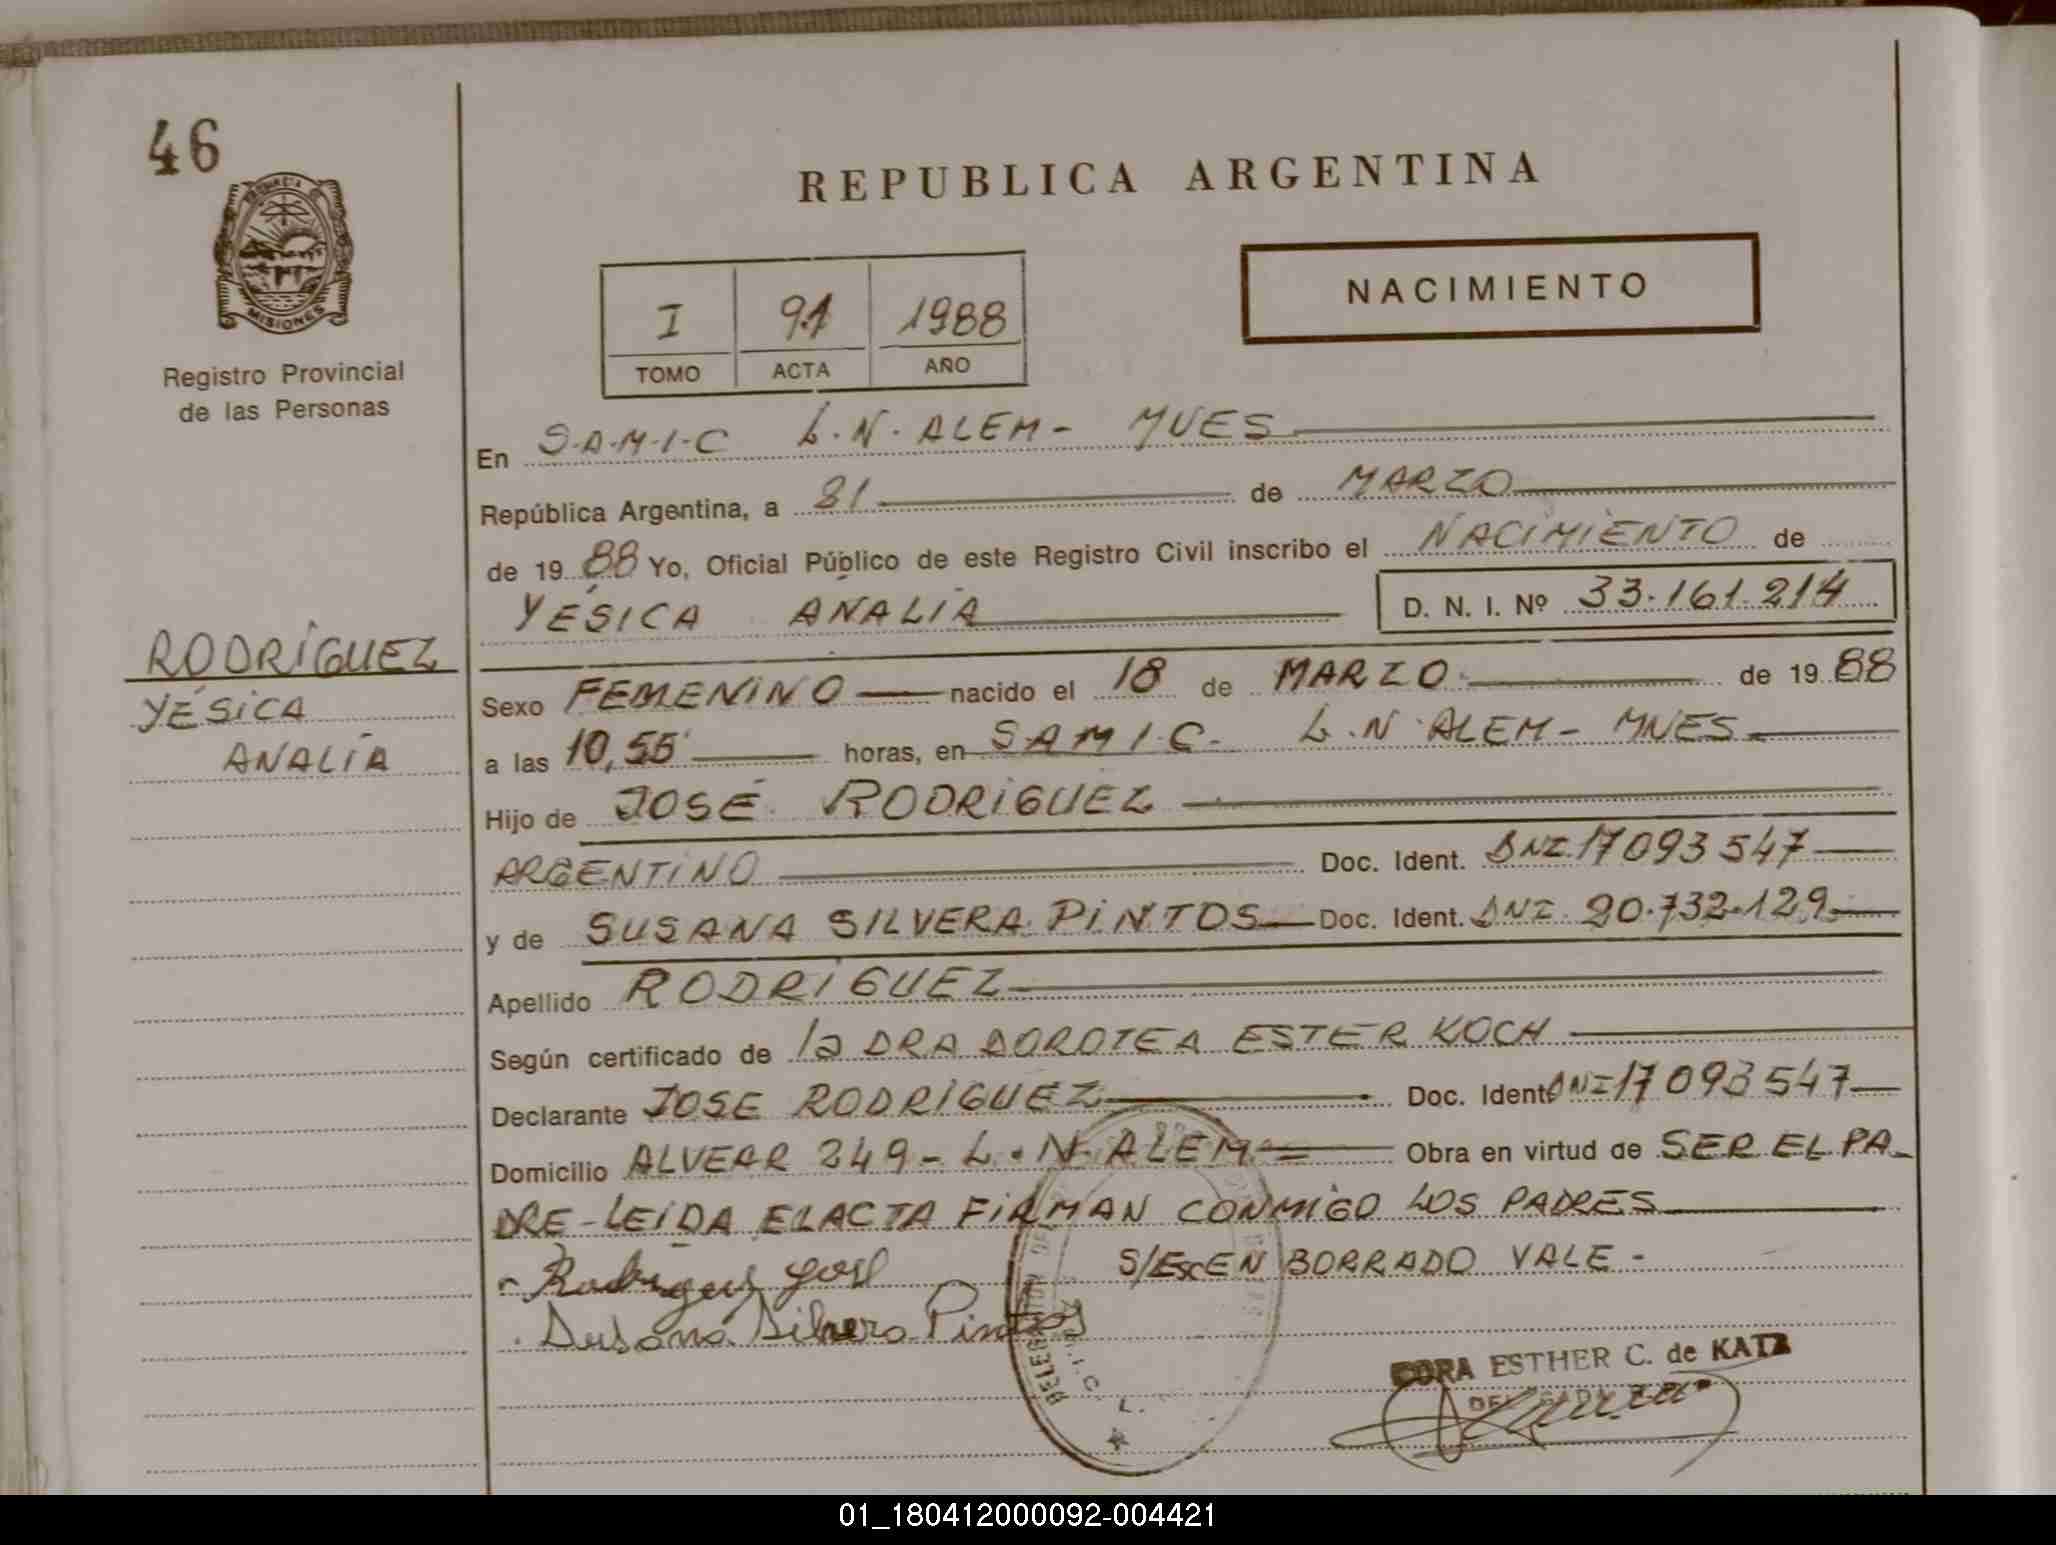 46
REPUBLICA ARGENTINA
NACIMIENTO
I 91 1988
TOMO ACTA AÑO
MISIONES
Registro Provincial
de las Personas
En S.A.M.I.C L.N. ALEM - MNES
República Argentina, a 31 de MARZO
de 1988 Yo, Oficial Público de este Registro Civil inscribo el NACIMIENTO de
YÉSICA ANALÍA D. N. I. Nº 33.161.214
RODRÍGUEZ
YÉSICA
ANALÍA
Sexo FEMENINO nacido el 18 de MARZO de 1988
a las 10,55' horas, en S.A.M.I.C. L.N. ALEM - MNES
Hijo de JOSÉ RODRÍGUEZ
ARGENTINO Doc. Ident. DNI 17093547
y de SUSANA SILVERA PINTOS Doc. Ident. DNI 20.732.129
Apellido RODRÍGUEZ
Según certificado de la DRA DOROTEA ESTER KOCH
Declarante JOSE RODRIGUEZ Doc. Ident. DNI 17093547
Domicilio ALVEAR 249 - L.N. ALEM Obra en virtud de SER EL PA-
DRE - LEÍDA EL ACTA FIRMAN CONMIGO LOS PADRES
Rodriguez José S/Esc EN BORRADO VALE -
Susana Silvera Pintos
CORA ESTHER C. de KATZ
01_180412000092-004421